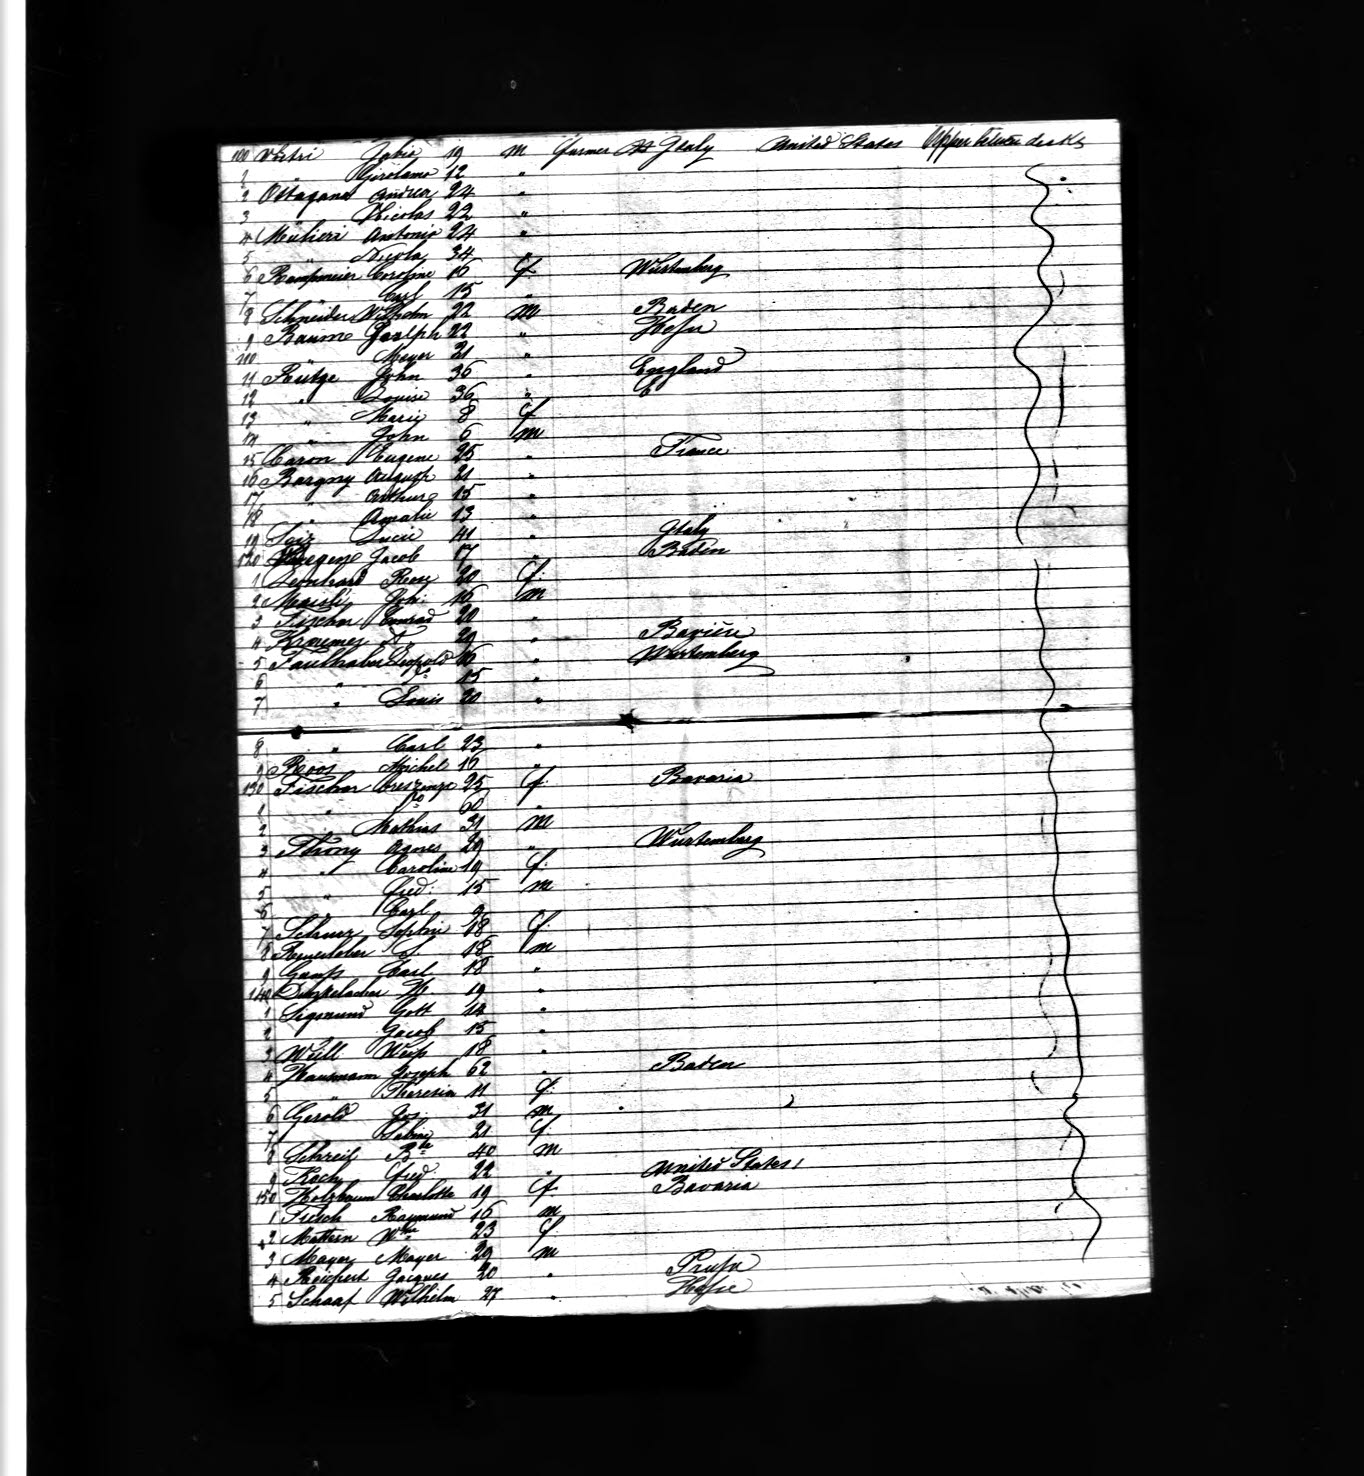 100 Vestri Fabio 19 m farmer Italy United States Upper between decks
1 Girolamo 12 "
2 Ottagana Andrea 24 "
3 Nicolas 22 "
4 Mulieri Antonio 24 "
5 " Nicola 34
6 Caroline 16 f. Würtemberg
7 " Carl 15 "
8 Schneider Wilhelm 22 m Baden
9 Baume 22 " Hesse
110 " Meyer 21 "
11 John 36 " England
12 " Louise 36 "
13 " Marie 8 f
14 " John 6 m
15 Caron Eugene 25 " France
16 August 21 "
17 " Arthur 15 "
18 " Amalie 13 "
19 41 " Italy
120 Jacob 17 " Baden
1 Leonhard Rosa 20 f.
2 Joh. 16 m
3 Fischer Conrad 20 "
4 29 " Baviere
5 Faulhaber Leopold 16 " Würtemberg
6 " 15 "
7 " Louis 20 "
8 " Carl 23 "
9 Roos Michel 16 "
130 Fischer Creszenze 25 f. Bavaria
1 " Do 60 "
2 Mathias 31 m
3 Thony Agnes 29 " Würtemberg
4 " Caroline 19 f.
5 " Fred. 15 m
6 Carl 9
7 Schurz Sophie 18 f.
8 S. 18 m
9 Gauss Carl 18 "
140 W 19 "
1 Sigmund Gott 14 "
2 Jacob 15 "
3 Weill 18 "
4 Hausmann Joseph 62 " Baden
5 " Theresia 11 f.
6 Gerold Jos. 31 m
7 Sabine 21 f.
8 40 m
9 Koch Fred 22 " United States
150 Holzbaum Charlotte 19 f. Bavaria
1 Raymund 16 m
2 Mattern 23 f
3 Mayer Mayer 29 m
4 Reichert Jacques 20 " Prusse
5 Schaaf Wilhelm 27 " Hesse